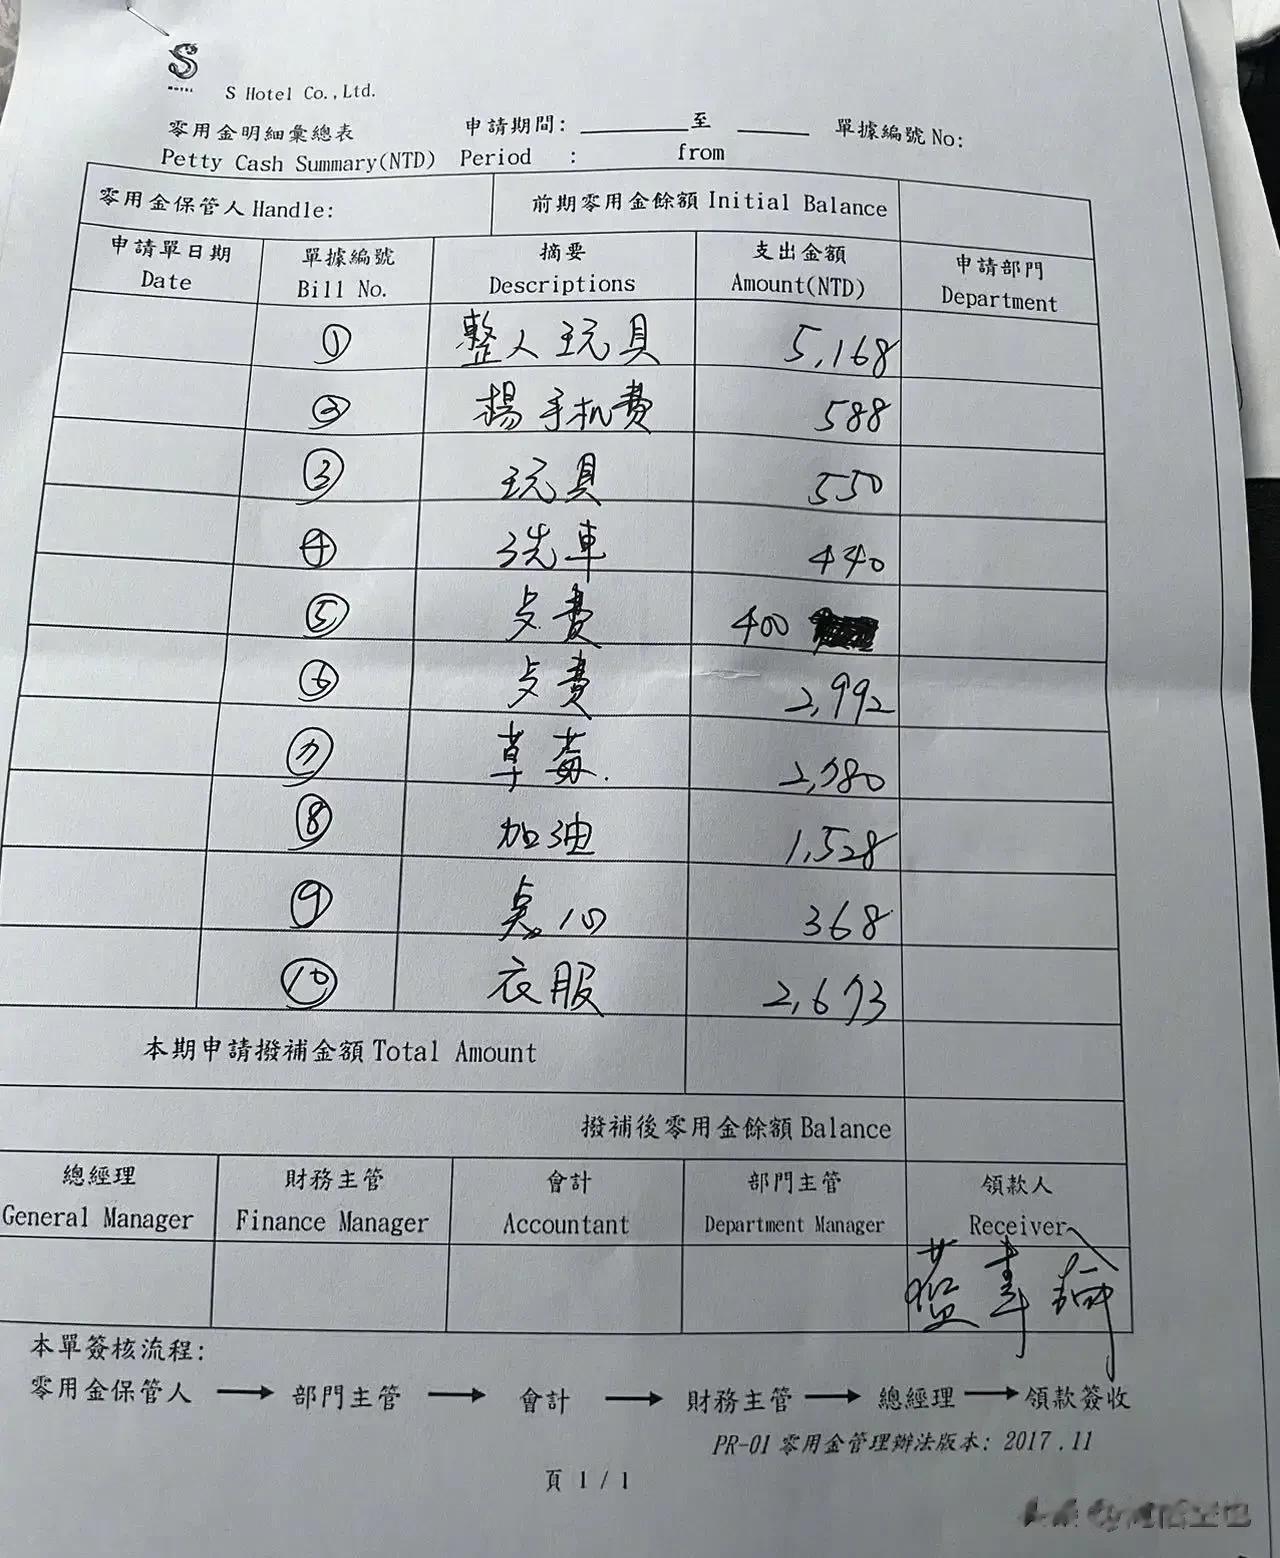 S
HOTEL
S Hotel Co.,Ltd.
零用金明細彙總表 申請期間: 至 單據編號 No:
Petty Cash Summary(NTD) Period : from
零用金保管人 Handle: 前期零用金餘額 Initial Balance
申請單日期 單據編號 摘要 支出金額 申請部門
Date Bill No. Descriptions Amount(NTD) Department
① 整人玩具 5,168
② 楊手机費 588
③ 玩具 550
④ 洗車 440
⑤ 费 400
⑥ 费 2,992
⑦ 草莓. 2,780
⑧ 加油 1,528
⑨ 點心 368
⑩ 衣服 2,673
本期申請撥補金額 Total Amount
撥補後零用金餘額 Balance
總經理 財務主管 會計 部門主管 領款人
General Manager Finance Manager Accountant Department Manager Receiver
本單簽核流程:
零用金保管人 → 部門主管 → 會計 → 財務主管 → 總經理 → 領款簽收
PR-01 零用金管理辦法版本: 2017.11
頁 1 / 1